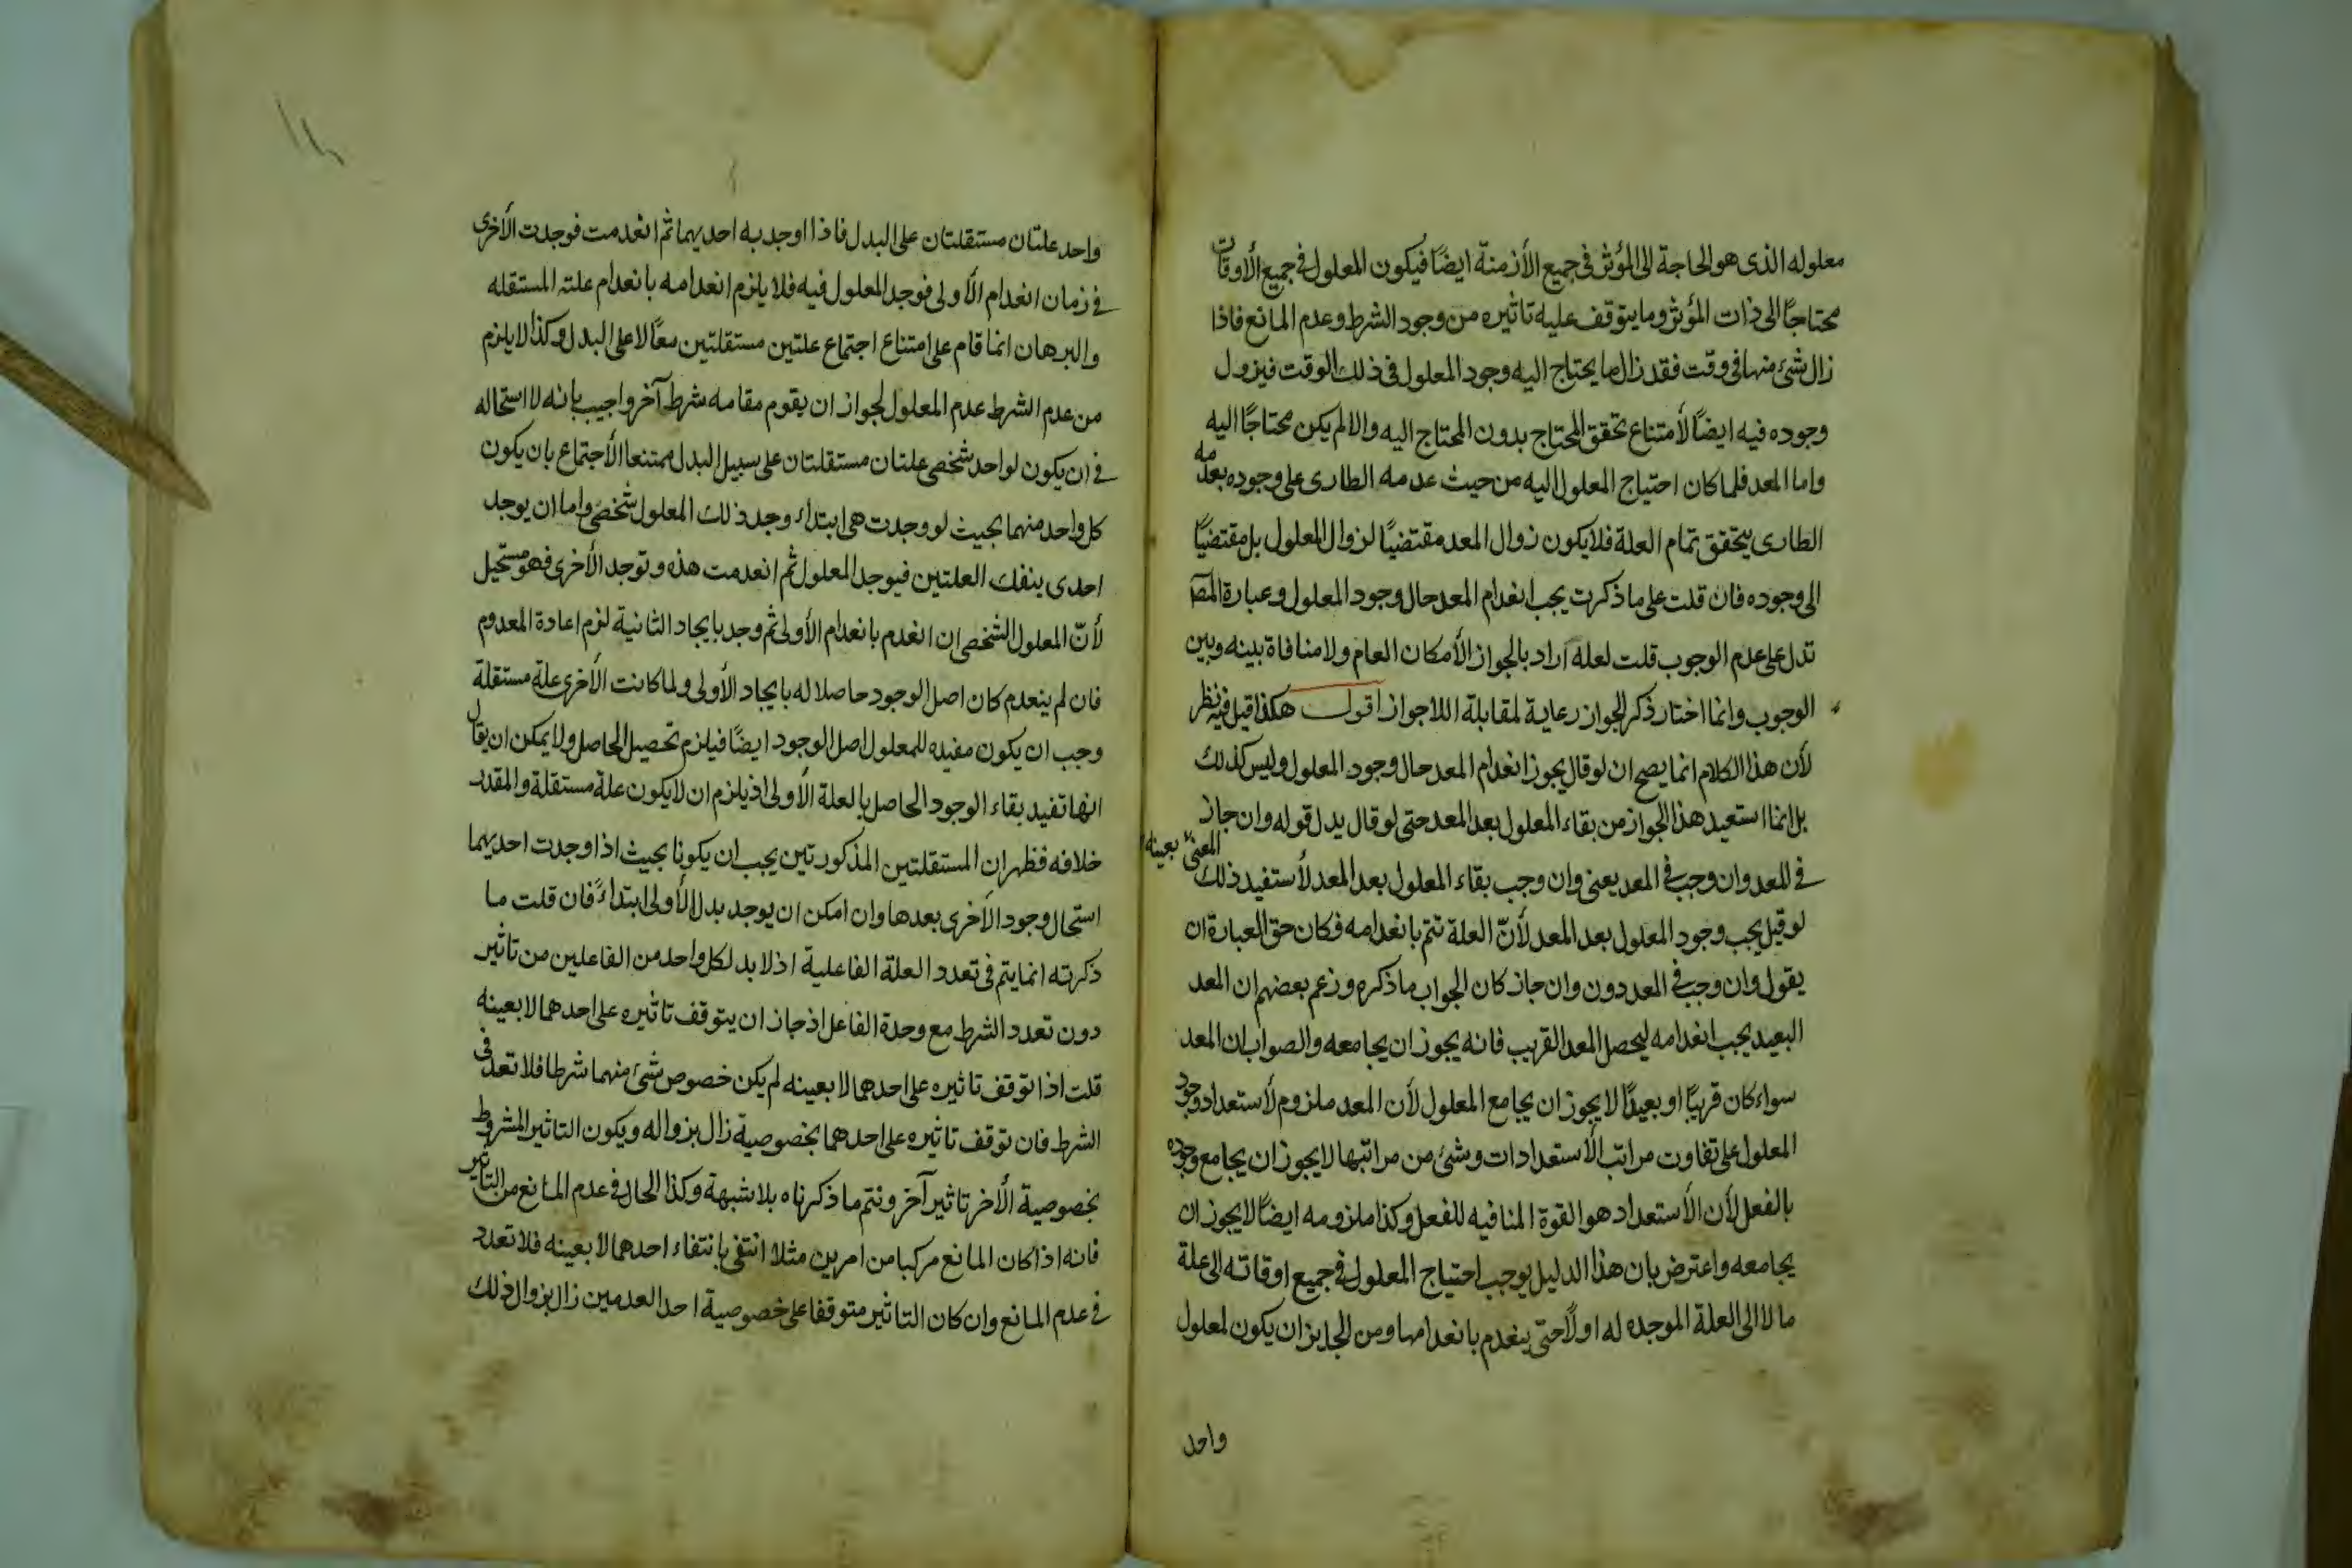 معلوله الذى هو الحاجة الى المؤثر فى جميع الأزمنة ايضًا فيكون المعلول فى جميع الأوقات
محتاجًا الى ذات المؤثر وما يتوقف عليه تاثيره من وجود الشرط وعدم المانع فاذا
زال شئ منها فى وقت فقد زال ما يحتاج اليه وجود المعلول فى ذلك الوقت فيزول
وجوده فيه ايضًا لأمتناع تحقق المحتاج بدون المحتاج اليه والا لم يكن محتاجًا اليه
واما المعد فلما كان احتياج المعلول اليه من حيث عدمه الطارى على وجوده بعدمه
الطارى يتحقق تمام العلة فلا يكون زوال المعد مقتضيًا لزوال المعلول بل مقتضيًا
الى وجوده فان قلت على ما ذكرت يجب انعدام المعد حال وجود المعلول وعبارة المص
تدل على عدم الوجوب قلت لعله اراد بالجواز الأمكان العام ولا منافاة بينه وبين
الوجوب وانما اختار ذكر الجواز رعاية لمقابلة اللاجواز اقول هكذا قيل فيه نظر
لأن هذا الكلام انما يصح ان لو قال يجوز انعدام المعد حال وجود المعلول وليس كذلك
بل انما استعيد هذا الجواز من بقاء المعلول بعد المعد حتى لو قال بدل قوله وان جاز
فى المعد وان وجب فى المعد يعنى وان وجب بقاء المعلول بعد المعد لأستفيد ذلك
المعنى بعينه
لو قيل يجب وجود المعلول بعد المعد لأنّ العلة تتم بانعدامه فكان حق العبارة ان
يقول وان وجب فى المعد دون وان جاز كان الجواب ما ذكره وزعم بعضهم ان المعد
البعيد يجب انعدامه ليحصل المعد القريب فانه يجوز ان يجامعه والصواب ان المعد
سواء كان قريبًا او بعيدًا لا يجوز ان يجامع المعلول لأن المعد ملزوم لأستعداد وجود
المعلول على تفاوت مراتب الأستعدادات وشئ من مراتبها لا يجوز ان يجامع وجوده
بالفعل لأن الأستعداد هو القوة المنافيه للفعل وكذا ملزومه ايضًا لا يجوز ان
يجامعه واعترض بان هذا الدليل يوجب احتياج المعلول فى جميع اوقاته الى علة
ما لا الى العلة الموجده له اولًا حتى ينعدم بانعدامها ومن الجايز ان يكون لمعلول
واحد
واحد علتان مستقلتان على البدل فاذا اوجد به احديهما ثم انعدمت فوجدت الأخرى
فى زمان انعدام الأولى فوجد المعلول فيه فلا يلزم انعدامه بانعدام علته المستقله
والبرهان انما قام على امتناع اجتماع علتين مستقلتين معًا لا على البدل وكذا لا يلزم
من عدم الشرط عدم المعلول لجواز ان يقوم مقامه شرط آخر واجيب بانه لا استحاله
فى ان يكون لواحد شخصى علتان مستقلتان على سبيل البدل ممتنعا الأجتماع بان يكون
كل واحد منهما بحيث لو وجدت هى ابتداء وجد ذلك المعلول شخصى واما ان يوجد
احدى ينفك العلتين فيوجد المعلول ثم انعدمت هذه وتوجد الأخرى فهو مستحيل
لأنّ المعلول الشخصى ان انعدم بانعدام الأولى ثم وجد بايجاد الثانية لزم اعادة المعدوم
فان لم ينعدم كان اصل الوجود حاصلا له بايجاد الأولى ولما كانت الأخرى علة مستقلة
وجب ان يكون مفيده للمعلول اصل الوجود ايضًا فيلزم تحصيل الحاصل ولا يمكن ان يقال
انها تفيد بقاء الوجود الحاصل بالعلة الأولى اذ يلزم ان لا يكون علة مستقلة والمقدر
خلافه فظهر ان المستقلتين المذكورتين يجب ان يكونا بحيث اذا وجدت احديهما
استحال وجود الأخرى بعدها وان امكن ان يوجد بدل الأولى ابتداءً فان قلت ما
ذكرته انما يتم فى تعدد العلة الفاعلية اذ لا بد لكل واحد من الفاعلين من تاثير
دون تعدد الشرط مع وحدة الفاعل اذ جاز ان يتوقف تاثيره على احدهما لا بعينه
قلت اذا توقف تاثيره على احدهما لا بعينه لم يكن خصوص شئ منهما شرطا فلا تعدد فى
الشرط فان توقف تاثيره على احدهما بخصوصية زال بزواله ويكون التاثير المشروط
بخصوصية الأخر تاثير آخر ونتم ما ذكرناه بلا شبهة وكذا الحال فى عدم المانع من التاثير
فانه اذا كان المانع مركبا من امرين مثلا انتفى بانتفاء احدهما لا بعينه فلا تعدد
فى عدم المانع وان كان التاثير متوقفا على خصوصية احد العدمين زال بزوال ذلك